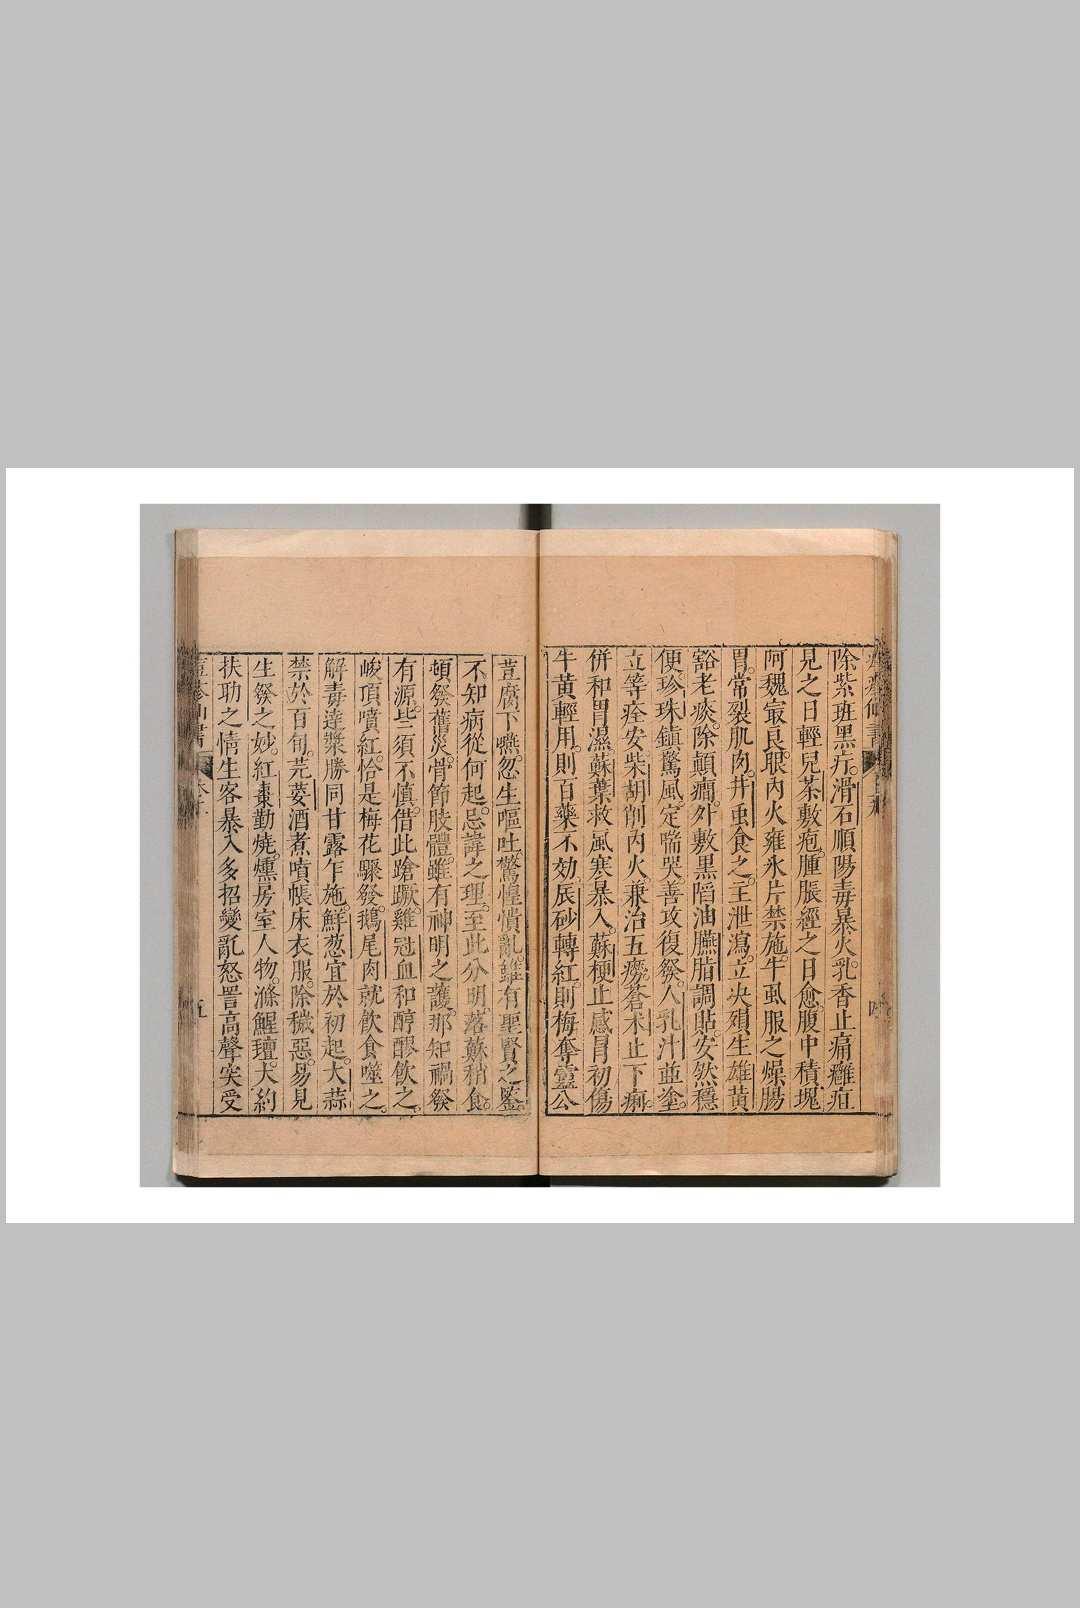 除紫班黑疔。滑石順陽毒暴火。乳香止痛癰疽
見之日輕。兒茶敷疱。腫脹經之日愈。腹中積塊
阿魏㝡良。眼內火雍。氷片禁施。牛虱服之燥腸
胃。常裂肌肉。井䖝食之。主泄瀉。立央殞生。雄黃
豁老痰。除顛癎。外敷黑䧟。油臙脂調貼。安然穩
便。珍珠鎮驚風。定喘哭。善攻復發。人乳汁並塗。
立等痊安。柴胡削內火。兼治五癆。蒼术止下痢。
併和胃濕。蘇葉救風寒暴入。蘇梗止感冒初傷
牛黃輕用。則百藥不効。辰砂轉紅。則梅奪靈公
荳腐下嚥。忽生嘔吐。驚惶憒亂。雖有聖賢之鑒。
不知病從何起。忌諱之理。至此分明。落蘇稍食。
頓發舊災。骨節肢體。雖有神明之護。那知禍發
有源。些須不慎。借此蹌蹶。雞冠血和醇醪飲之。
峻頂噴紅。恰是梅花驟發。鵝尾肉就飲食噬之。
解毒達漿。勝同甘露乍施。鮮葱宜於初起。大蒜
禁於百旬。芫荽酒煮。噴帳床衣服。除穢惡。易見
生發之妙。紅棗勤燒。燻房室人物。滌鯹羶。大約
扶助之情。生客暴入多招變亂。怒詈高聲突受
痘疹仙書 卷十 五